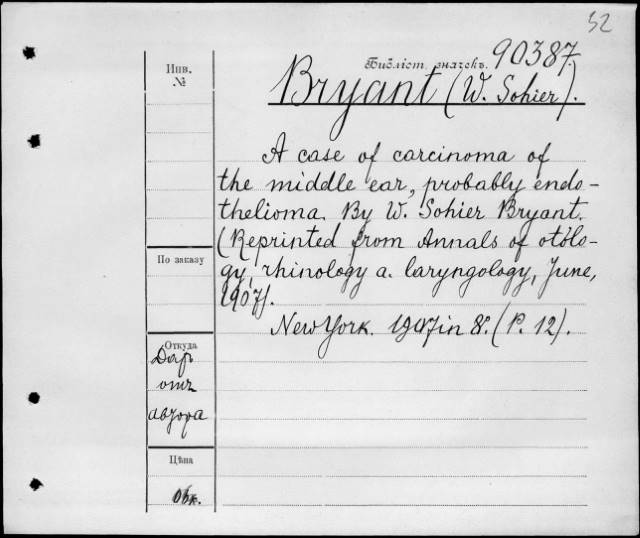 52
Библіст. значекъ. 90387.
Инв.
№
Bryant (W. Sohier).
A case of carcinoma of
the middle ear, probably endo-
thelioma. By W. Sohier Bryant.
(Reprinted from Annals of otolo-
gy, rhinology a. laryngology, June,
1907).
New York. 1907 in 8º. (P. 12).
По заказу
Откуда
Даръ
отъ
автора
Цѣна